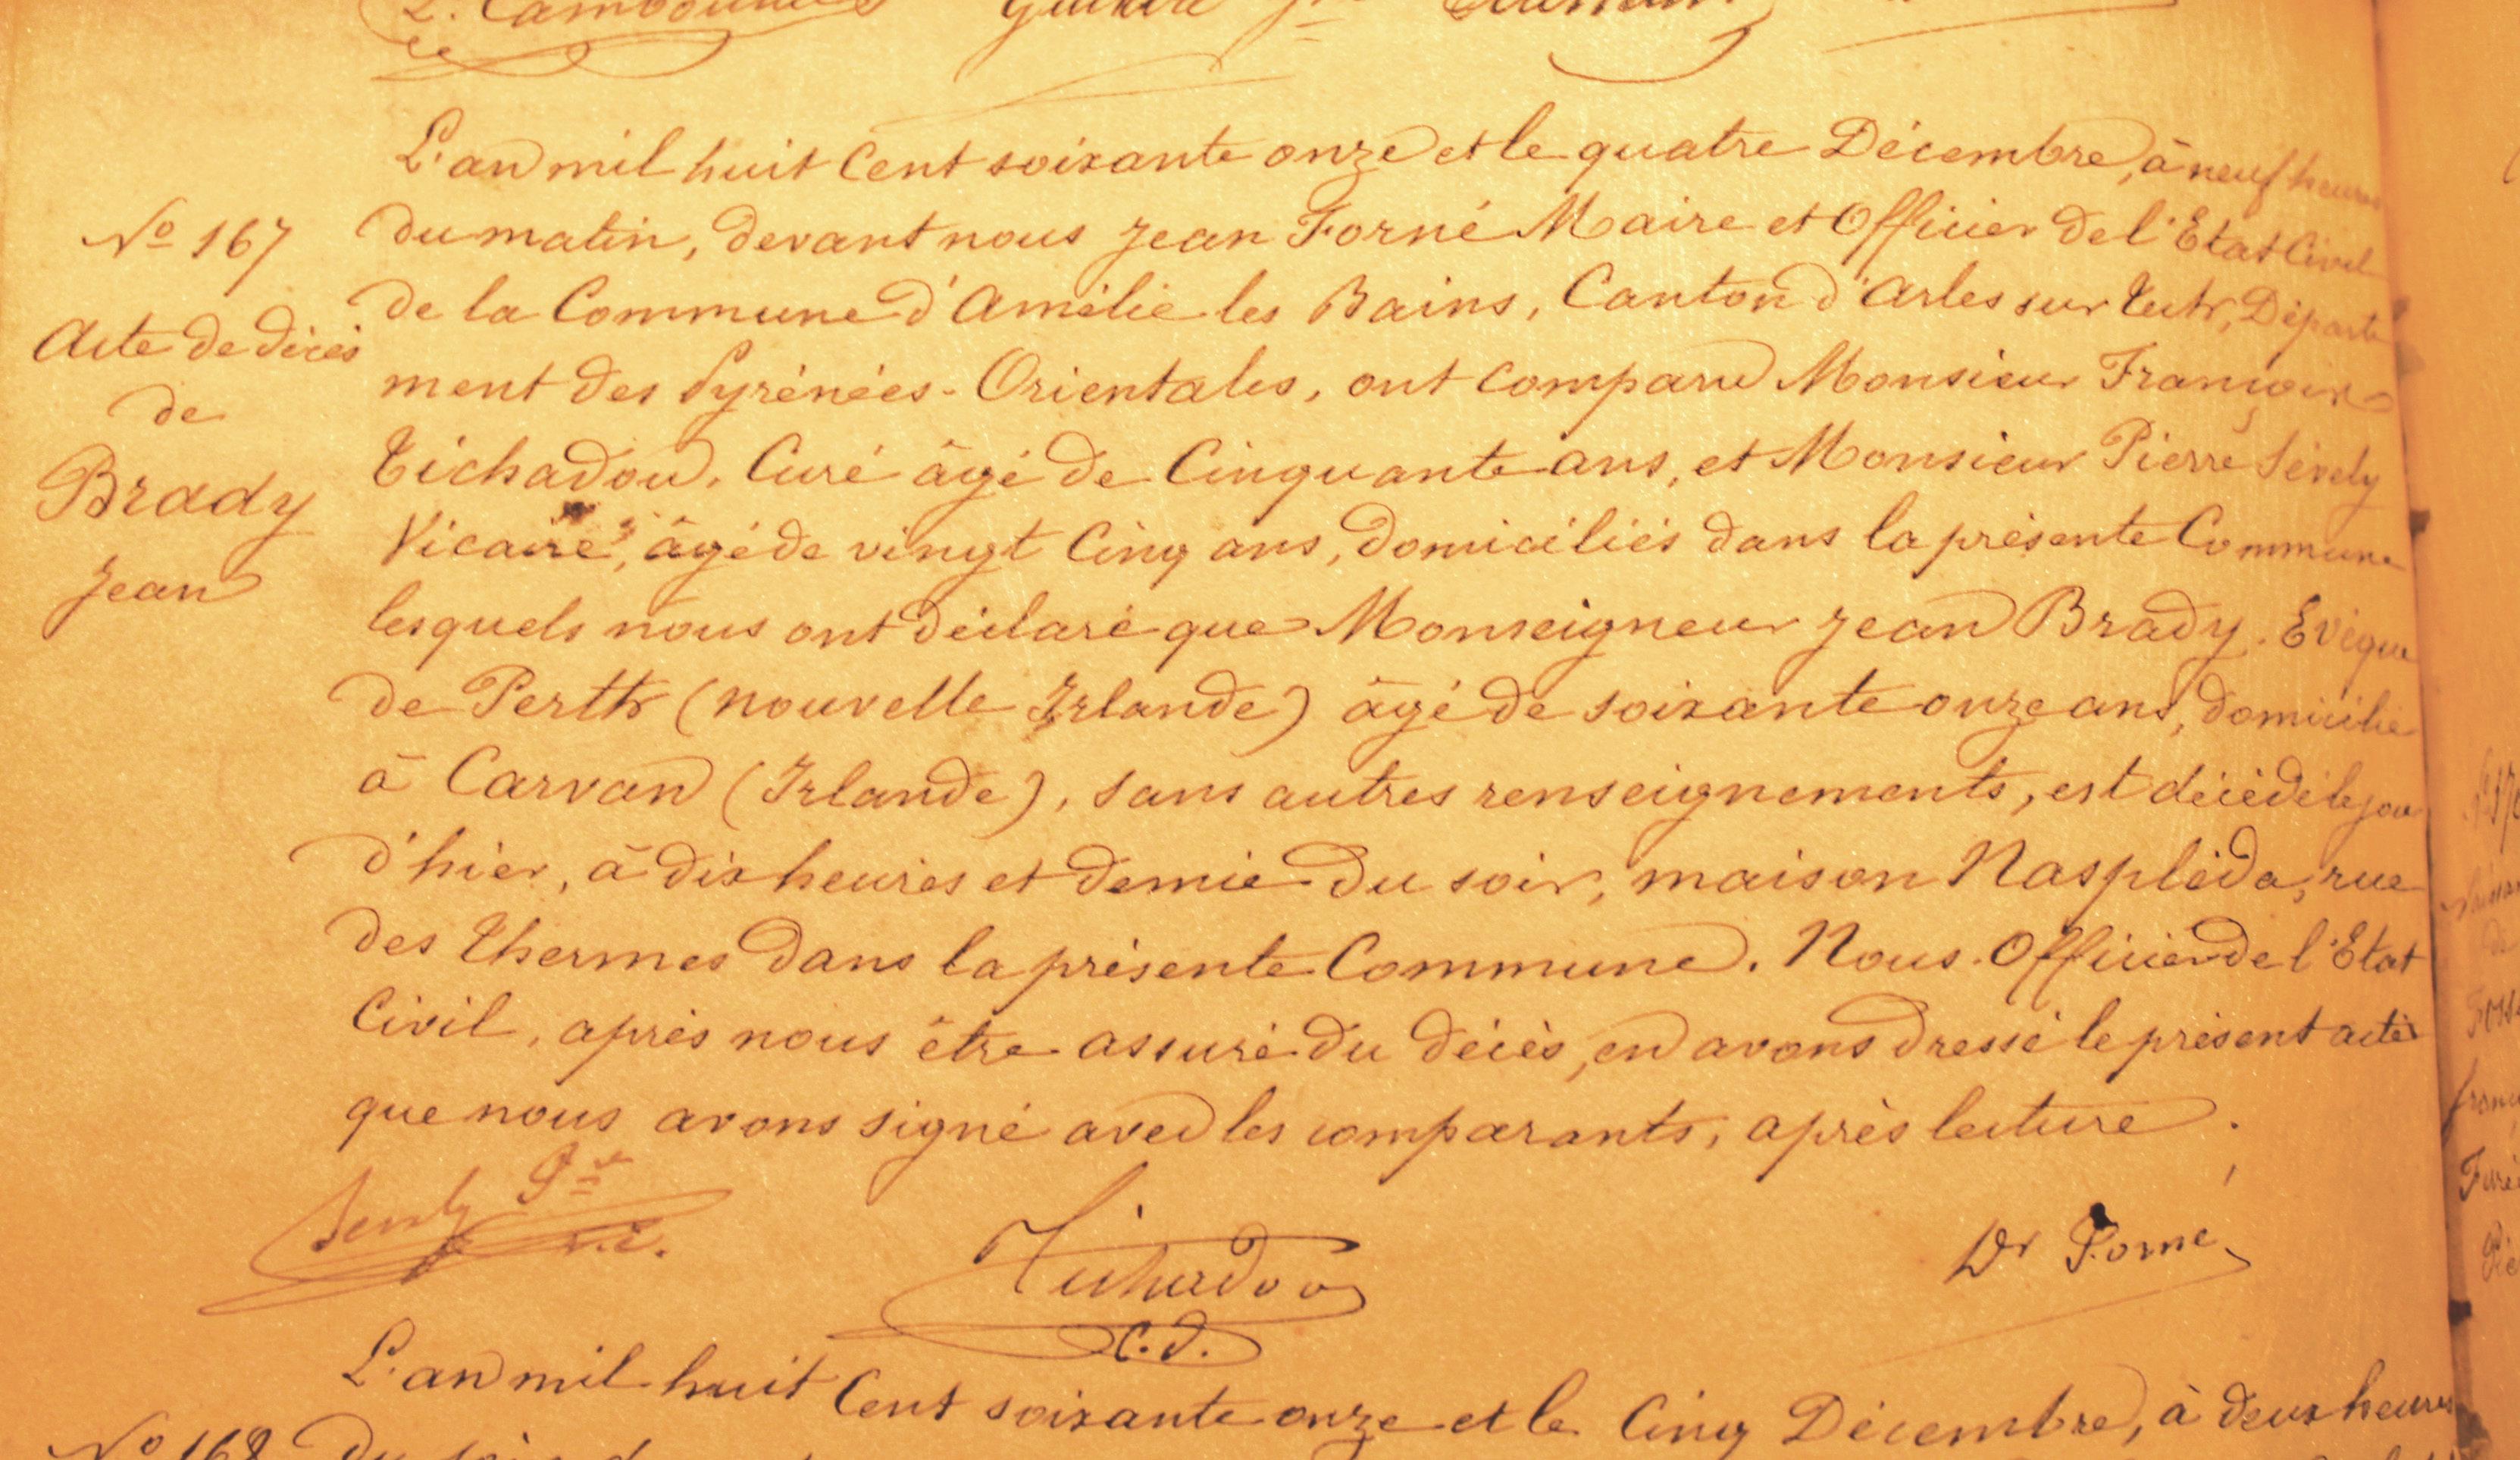 L. Cambo
L'an mil huit Cent soixante onze et le quatre Décembre, à neuf heures
No 167
du matin, devant nous Jean Forné Maire et Officier de l'Etat Civil
de la Commune d'Amélie les Bains, Canton d'Arles sur Tech, Départe
Acte de décès
ment des Pyrénées-Orientales, ont comparu Monsieur François
de
Tichadou, Curé âgé de Cinquante ans, et Monsieur Pierre Sévely
Brady
Vicaire, âgé de vingt Cinq ans, domiciliés dans la présente Commune
Jean
lesquels nous ont déclaré que Monseigneur Jean Brady. Evêque
de Perth (nouvelle Irlande) âgé de soixante onze ans, domicilié
à Carvan (Irlande), sans autres renseignements, est décédé le jour
d'hier, à dix heures et demie du soir, maison Naspléda, rue
des Thermes dans la présente Commune. Nous Officier de l'Etat
Civil, après nous être assuré du décès, en avons dressé le présent acte
que nous avons signé avec les comparants, après lecture.
Sévely Pre
v.c.
Tichadou
C.d.
Dr Forné
L'an mil huit Cent soixante onze et le Cinq Décembre, à deux heures
No 168
du soir